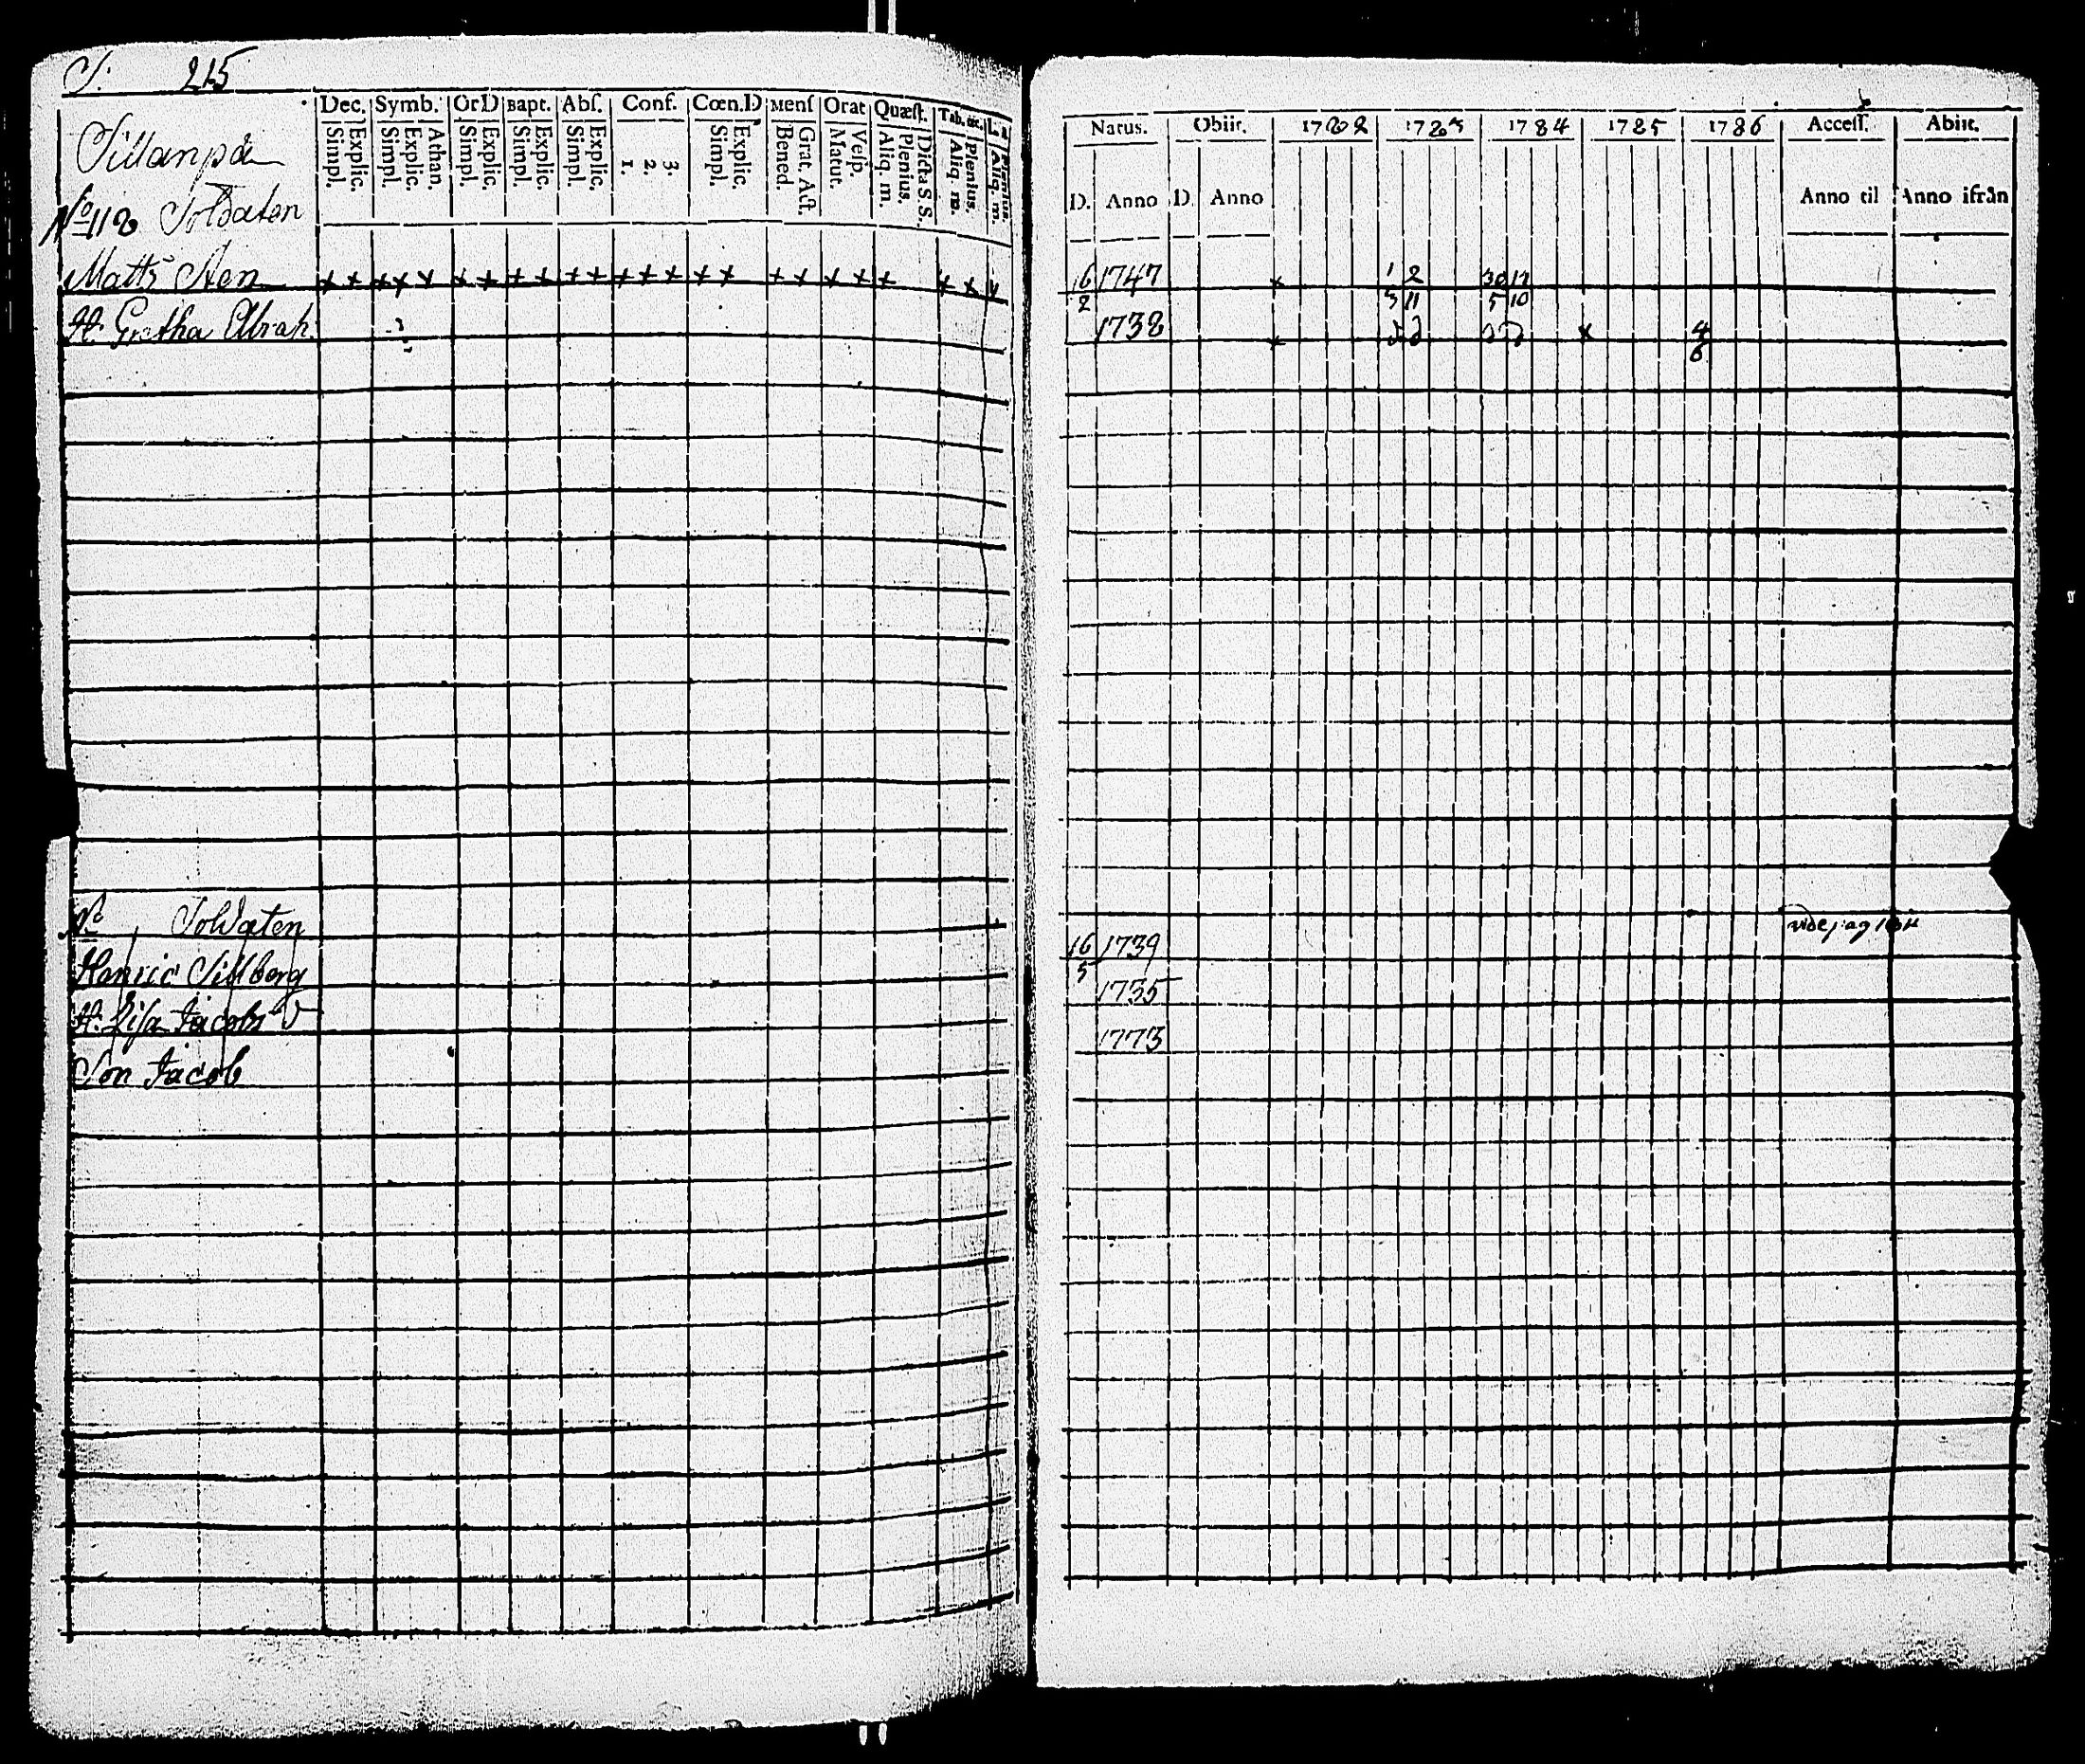 S: 215
Dec. Symb. OrD Bapt. Abſ. Conf. Cœn.D Menſ Orat Quæſt. Tab. œc. L. a
Simpl. Explic. Simpl. Explic. Athan. Simpl. Explic. Simpl. Explic. Simpl. Explic. 1. 2. 3. Simpl. Explic. Bened. Grat. Act. Matut. Veſp. Aliq. m. Plenius. Dicta S.S. Aliq. m. Plenius. Aliq. m. Plenius.
Sillanpää
No 118 Soldaten
Matts Aen x x x x x x x x x x x x x x x x x x x x x x x x
H. Gretha Abrah.
No Soldaten
Henric Sillberg
H. Lisa Jacobs
Son Jacob
Natus. Obiit. 1782 1783 1784 1785 1786 Acceſſ. Abiit.
D. Anno D. Anno Anno til Anno ifrån
16/2 1747 x 1/3 2/11 30/5 17/10
1738 x x 4/6
16/5 1739
1735
1773